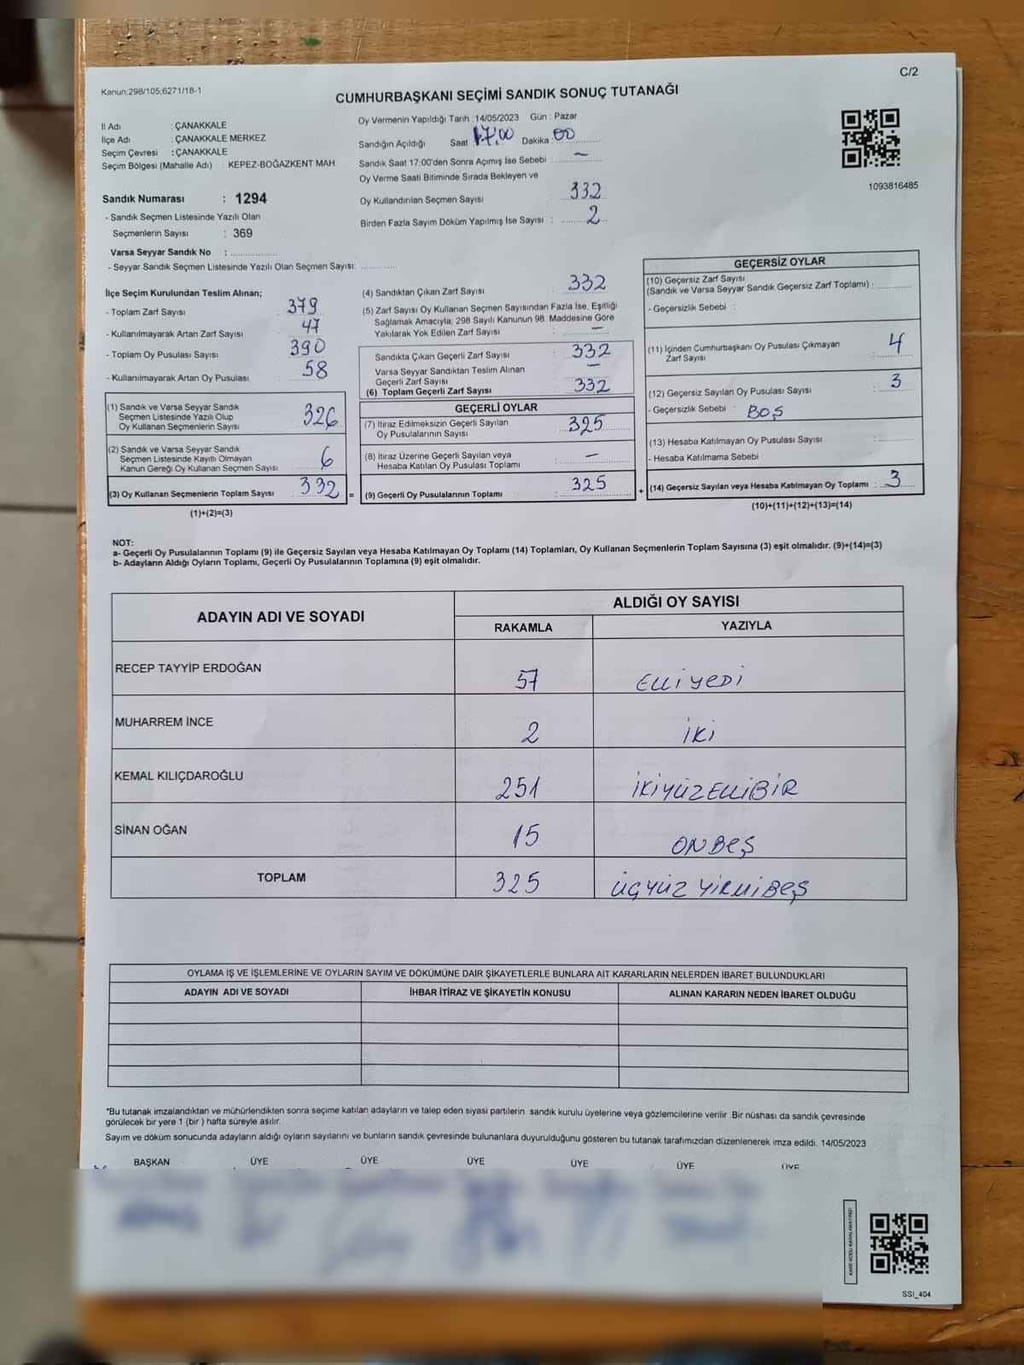 C/2
Kanun:298/105;6271/18-1
CUMHURBAŞKANI SEÇİMİ SANDIK SONUÇ TUTANAĞI
İl Adı : ÇANAKKALE
İlçe Adı : ÇANAKKALE MERKEZ
Seçim Çevresi : ÇANAKKALE
Seçim Bölgesi (Mahalle Adı) : KEPEZ-BOĞAZKENT MAH
Sandık Numarası : 1294
- Sandık Seçmen Listesinde Yazılı Olan
Seçmenlerin Sayısı : 369
Varsa Seyyar Sandık No :
- Seyyar Sandık Seçmen Listesinde Yazılı Olan Seçmen Sayısı:
Oy Vermenin Yapıldığı Tarih :14/05/2023 Gün : Pazar
Sandığın Açıldığı Saat 17.00 Dakika 00
Sandık Saat 17:00'den Sonra Açımış İse Sebebi : –
Oy Verme Saati Bitiminde Sırada Bekleyen ve
Oy Kullandırılan Seçmen Sayısı 332
Birden Fazla Sayım Döküm Yapılmış İse Sayısı : 2
1093816485
İlçe Seçim Kurulundan Teslim Alınan;
- Toplam Zarf Sayısı : 379
- Kullanılmayarak Artan Zarf Sayısı : 47
- Toplam Oy Pusulası Sayısı : 390
- Kullanılmayarak Artan Oy Pusulası : 58
(1) Sandık ve Varsa Seyyar Sandık
Seçmen Listesinde Yazılı Olup
Oy Kullanan Seçmenlerin Sayısı 326
(2) Sandık ve Varsa Seyyar Sandık
Seçmen Listesinde Kayıtlı Olmayan
Kanun Gereği Oy Kullanan Seçmen Sayısı 6
(3) Oy Kullanan Seçmenlerin Toplam Sayısı : 332 =
(1)+(2)=(3)
(4) Sandıktan Çıkan Zarf Sayısı : 332
(5) Zarf Sayısı Oy Kullanan Seçmen Sayısından Fazla İse, Eşitliği
Sağlamak Amacıyla; 298 Sayılı Kanunun 98. Maddesine Göre
Yakılarak Yok Edilen Zarf Sayısı : –
Sandıkta Çıkan Geçerli Zarf Sayısı : 332
Varsa Seyyar Sandıktan Teslim Alınan
Geçerli Zarf Sayısı : –
(6) Toplam Geçerli Zarf Sayısı : 332
GEÇERLİ OYLAR
(7) İtiraz Edilmeksizin Geçerli Sayılan
Oy Pusulalarının Sayısı : 325
(8) İtiraz Üzerine Geçerli Sayılan veya
Hesaba Katılan Oy Pusulası Toplamı : –
(9) Geçerli Oy Pusulalarının Toplamı : 325 +
GEÇERSİZ OYLAR
(10) Geçersiz Zarf Sayısı
(Sandık ve Varsa Seyyar Sandık Geçersiz Zarf Toplamı) :
- Geçersizlik Sebebi :
(11) İçinden Cumhurbaşkanı Oy Pusulası Çıkmayan
Zarf Sayısı : 4
(12) Geçersiz Sayılan Oy Pusulası Sayısı : 3
- Geçersizlik Sebebi : BOŞ
(13) Hesaba Katılmayan Oy Pusulası Sayısı :
- Hesaba Katılmama Sebebi :
(14) Geçersiz Sayılan veya Hesaba Katılmayan Oy Toplamı : 3
(10)+(11)+(12)+(13)=(14)
NOT:
a- Geçerli Oy Pusulalarının Toplamı (9) ile Geçersiz Sayılan veya Hesaba Katılmayan Oy Toplamı (14) Toplamları, Oy Kullanan Seçmenlerin Toplam Sayısına (3) eşit olmalıdır. (9)+(14)=(3)
b- Adayların Aldığı Oyların Toplamı, Geçerli Oy Pusulalarının Toplamına (9) eşit olmalıdır.
ADAYIN ADI VE SOYADI ALDIĞI OY SAYISI
RAKAMLA YAZIYLA
RECEP TAYYİP ERDOĞAN 57 ELLİYEDİ
MUHARREM İNCE 2 İKİ
KEMAL KILIÇDAROĞLU 251 İKİYÜZELLİBİR
SİNAN OĞAN 15 ONBEŞ
TOPLAM 325 ÜÇYÜZ YİRMİBEŞ
OYLAMA İŞ VE İŞLEMLERİNE VE OYLARIN SAYIM VE DÖKÜMÜNE DAİR ŞİKAYETLERLE BUNLARA AİT KARARLARIN NELERDEN İBARET BULUNDUKLARI
ADAYIN ADI VE SOYADI İHBAR İTİRAZ VE ŞİKAYETİN KONUSU ALINAN KARARIN NEDEN İBARET OLDUĞU
*Bu tutanak imzalandıktan ve mühürlendikten sonra seçime katılan adayların ve talep eden siyasi partilerin sandık kurulu üyelerine veya gözlemcilerine verilir. Bir nüshası da sandık çevresinde
görülecek bir yere 1 (bir ) hafta süreyle asılır.
Sayım ve döküm sonucunda adayların aldığı oyların sayılarını ve bunların sandık çevresinde bulunanlara duyurulduğunu gösteren bu tutanak tarafımızdan düzenlenerek imza edildi. 14/05/2023
BAŞKAN ÜYE ÜYE ÜYE ÜYE ÜYE ÜYE
SSI_404